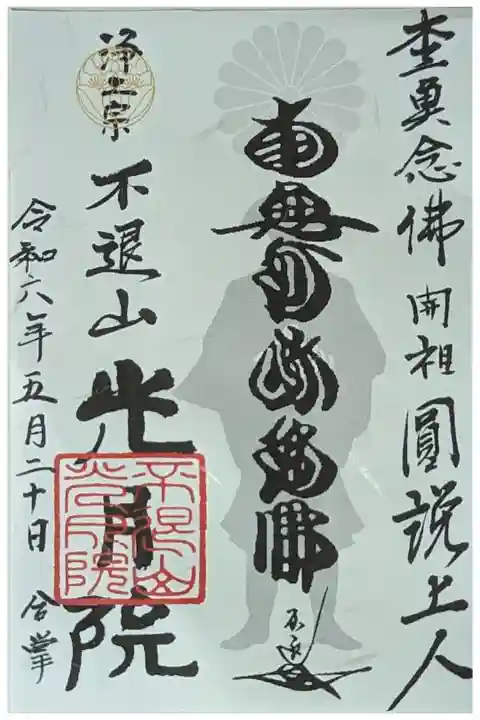 杢魚念佛開祖圓説上人
南無阿弥陀佛
浄土宗
不退山光月院
不退山
光月院
令和六年五月二十日 合掌